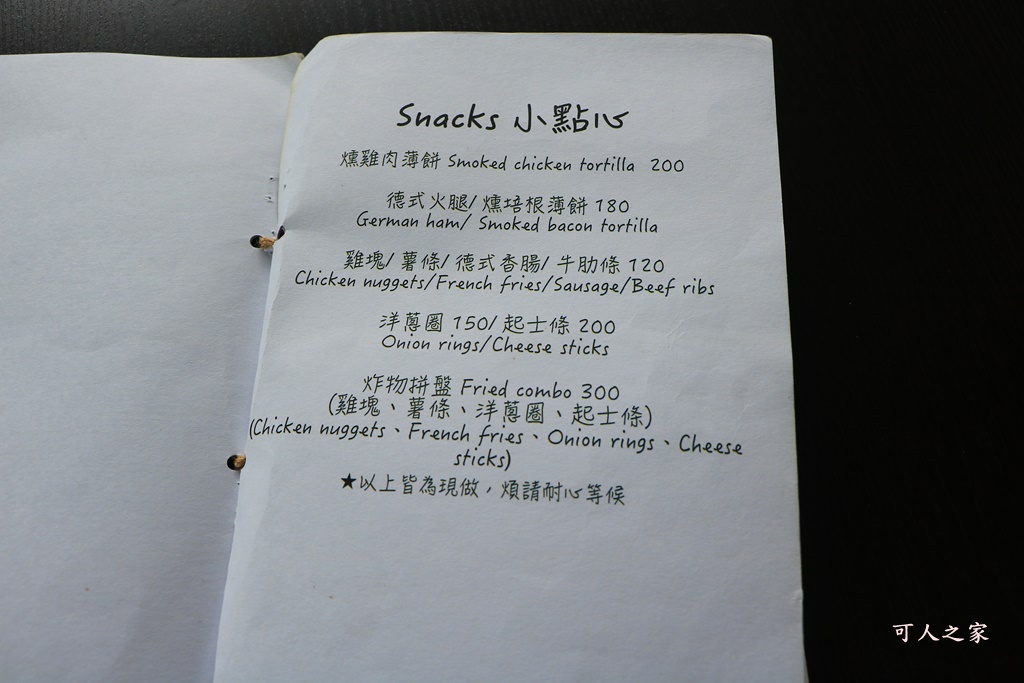 Snacks 小點心
燻雞肉薄餅 Smoked chicken tortilla 200
德式火腿/ 燻培根薄餅 180
German ham/ Smoked bacon tortilla
雞塊/ 薯條/ 德式香腸/ 牛肋條 120
Chicken nuggets/French fries/Sausage/Beef ribs
洋蔥圈 150/ 起士條 200
Onion rings/Cheese sticks
炸物拼盤 Fried combo 300
(雞塊、薯條、洋蔥圈、起士條)
(Chicken nuggets、French fries、Onion rings、Cheese
sticks)
★以上皆為現做，煩請耐心等候
可人之家